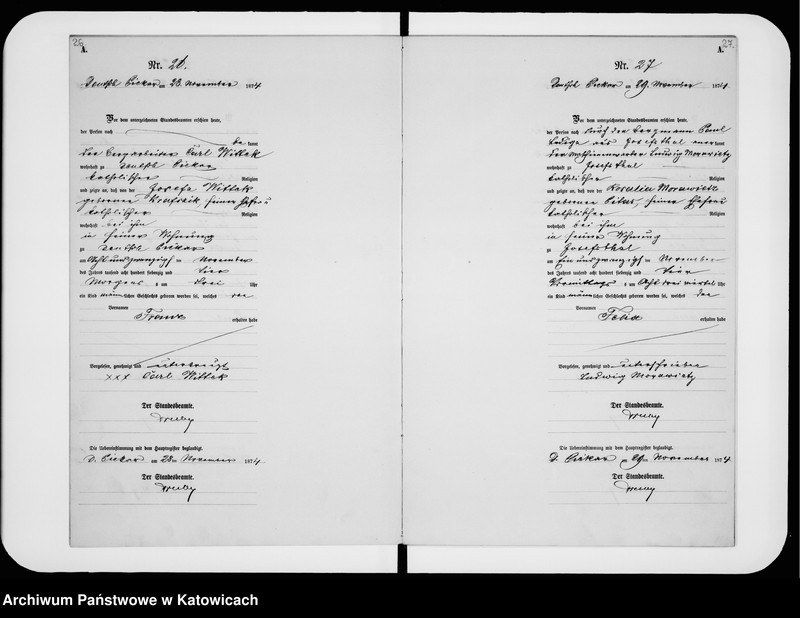 26
A.
Nr. 26.
Deutsch Piekar am 28. November 1874
Vor dem unterzeichneten Standesbeamten erschien heute,
der Person nach
be kannt
der Bergarbeiter Carl Wittek
wohnhaft zu Deutsch Piekar
katholischer Religion
und zeigte an, daß von der Josefa Wittek
geborenen seiner Ehefrau
katholischer Religion
wohnhaft bei ihm
in seiner Wohnung
zu Deutsch Piekar
am Acht und zwanzigsten November
des Jahres tausend acht hundert siebenzig und vier
Morgens um drei Uhr
ein Kind männlichen Geschlechts geboren worden sei, welches den
Vornamen
Franz
erhalten habe
Vorgelesen, genehmigt und unterkreuzt
xxx Carl Wittek
Der Standesbeamte.
Die Uebereinstimmung mit dem Hauptregister beglaubigt.
D. Piekar am 28ten November 1874
Der Standesbeamte.
27.
A.
Nr. 27
Deutsch Piekar am 29. November 1874.
Vor dem unterzeichneten Standesbeamten erschien heute,
der Person nach durch den Bergmann Paul
aus Josefsthal anerkannt
der Ludwig Morawietz
wohnhaft zu Josefsthal
katholischer Religion
und zeigte an, daß von der Rosalia Morawietz
geborenen seiner Ehefrau
katholischer Religion
wohnhaft bei ihm
in seiner Wohnung
zu Josefsthal
am Ein und zwanzigsten November
des Jahres tausend acht hundert siebenzig und vier
Vormittags um Acht drei viertel Uhr
ein Kind männlichen Geschlechts geboren worden sei, welches den
Vornamen
Felix
erhalten habe
Vorgelesen, genehmigt und unterschrieben
Ludwig Morawietz
Der Standesbeamte.
Die Uebereinstimmung mit dem Hauptregister beglaubigt.
D. Piekar am 29ten November 1874
Der Standesbeamte.
Archiwum Państwowe w Katowicach